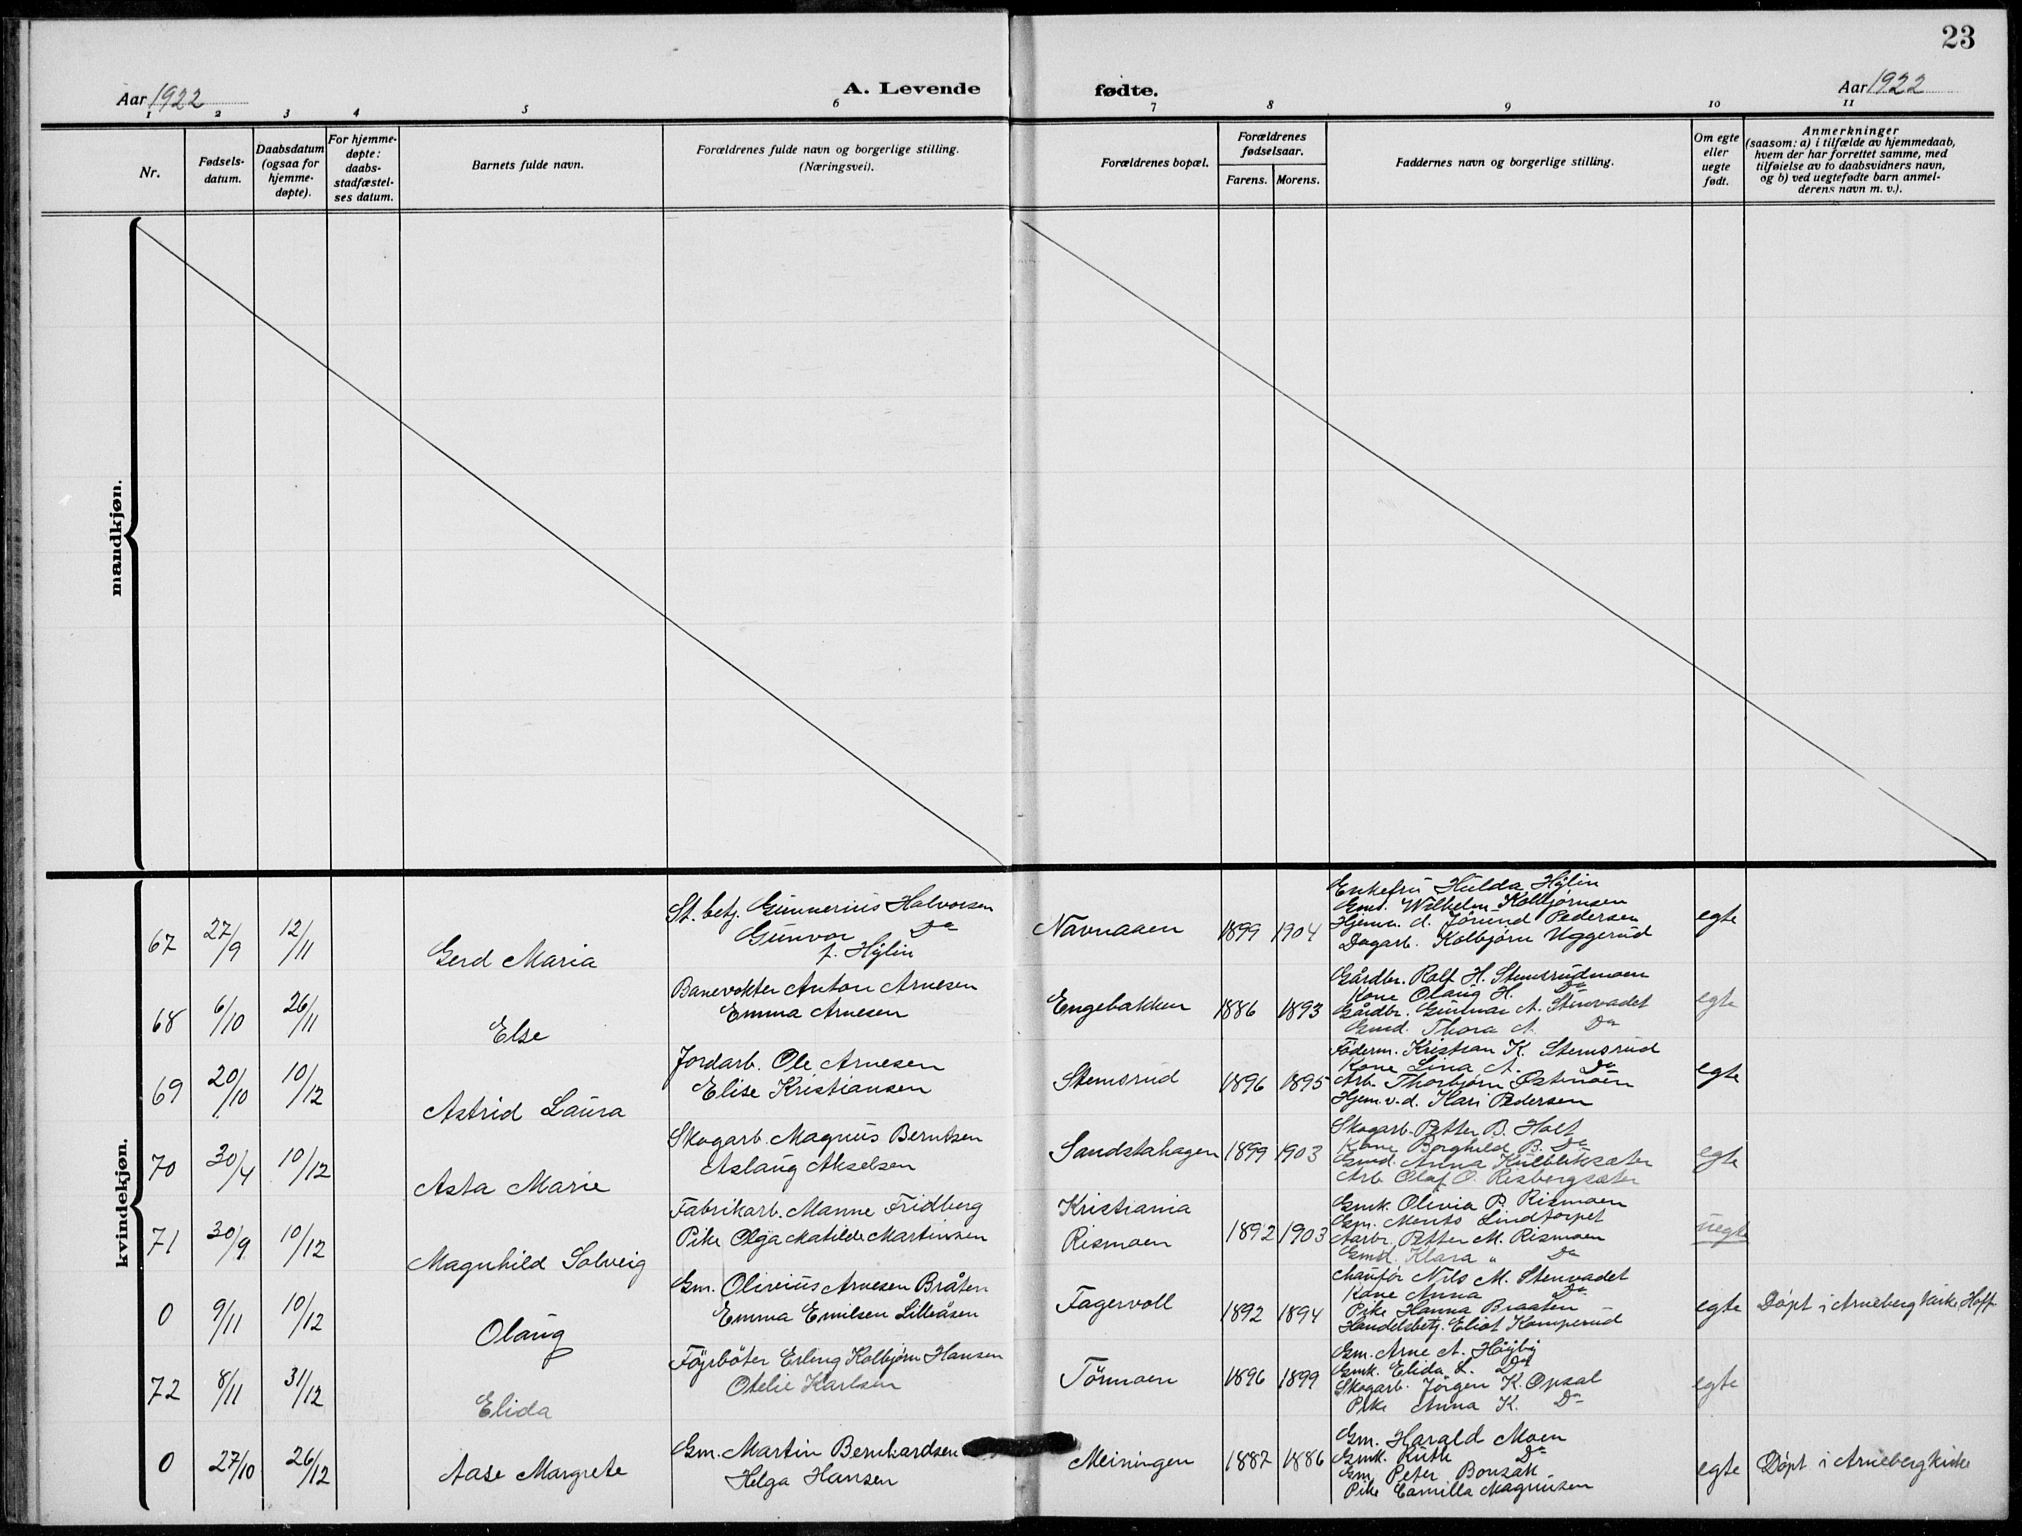 23
Aar 1922
A. Levende
fødte.
Aar 1922
1 2 3 4 5 6 7 8 9 10 11
Nr.
Fødsels-
datum.
Daabsdatum
(ogsaa for
hjemme-
døpte).
For hjemme-
døpte:
daabs-
stadfæstel-
ses datum.
Barnets fulde navn.
Forældrenes fulde navn og borgerlige stilling.
(Næringsvei).
Forældrenes bopæl.
Forældrenes
fødselsaar.
Farens. Morens.
Faddernes navn og borgerlige stilling.
Om egte
eller
uegte
født.
Anmerkninger
(saasom: a) i tilfælde av hjemmedaab,
hvem der har forrettet samme, med
tilføielse av to daabsvidners navn,
og b) ved uegtefødte barn anmel-
derens navn m. v.).
mandkjøn.
kvindekjøn.
67 27/9 12/11 Gerd Maria
St. betj. Gunnerius Halvorsen
Gunvor Do
f. Hylin
Navnaaen 1899 1904
Enkefru Hulda Hylin
Gmd. Wilhelm Kolbjørnsen
Hjemv. d. Jörund Pedersen
Dagarb. Kolbjørn Uggerud
egte
68 6/10 26/11 Else
Banevokter Anton Arnesen
Emma Arnesen
Engebakken 1886 1893
Gårdbr. Rolf H. Stemsrudmoen
Kone Olaug H. Do
Gårdbr. Gunnar A. Stenvadet
Gmd. Thora A. Do
egte
69 20/10 10/12 Astrid Laura
Jordarb. Ole Arnesen
Elise Kristiansen
Stemsrud 1896 1895
Föderm. Kristian K. Stemsrud
Kone Lina A. Do
Arb. Thorbjørn Østmoen
Hjem.v.d. Kari Pedersen
egte
70 30/4 10/12 Asta Marie
Skogarb. Magnus Berntsen
Aslaug Akselsen
Sandstahagen 1899 1903
Skogarb. Petter B. Holt
Kone Borghild B. Do
Gmd. Anna Kulbliksæter
Arb. Olaf O. Risbergsæter
egte
71 30/9 10/12 Magnhild Solveig
Fabrikarb. Manne Fridberg
Pike Olga Matilde Martinsen
Kristiania
Rismoen 1892 1903
Gmk. Olivia P. Rismoen
Gm. Ments Lindtorpet
Aarbr. Petter M. Rismoen
Gmd. Klara " Do
uegte
0 9/11 10/12 Olaug
Gm. Olivius Arnesen Bråten
Emma Emilsen Lilleåsen
Fagervoll 1892 1894
Chauför Nils M. Stenvadet
Kone Anna Do
Pike Hanna Braaten
Handelsbetj. Eliot Kamperud
egte Döpt i Arneberg kirke, Hoff
72 8/11 31/12 Elida
Föjrböter Erling Kolbjørn Hansen
Otelie Karlsen
Törmoen 1896 1899
Gm. Arne A. Höjby
Gmk. Elida L. Do
Skogarb. Jörgen K. Opsal
Pike Anna K. Do
egte
0 27/10 26/12 Aase Margrete
Gm. Martin Bernhardsen
Helga Hansen
Meiningen 1887 1886
Gm. Harald Moen
Gmk. Ruth Do
Gm. Peter Bonsak
Pike Camilla Magnusen
egte Döpt i Arneberg kirke